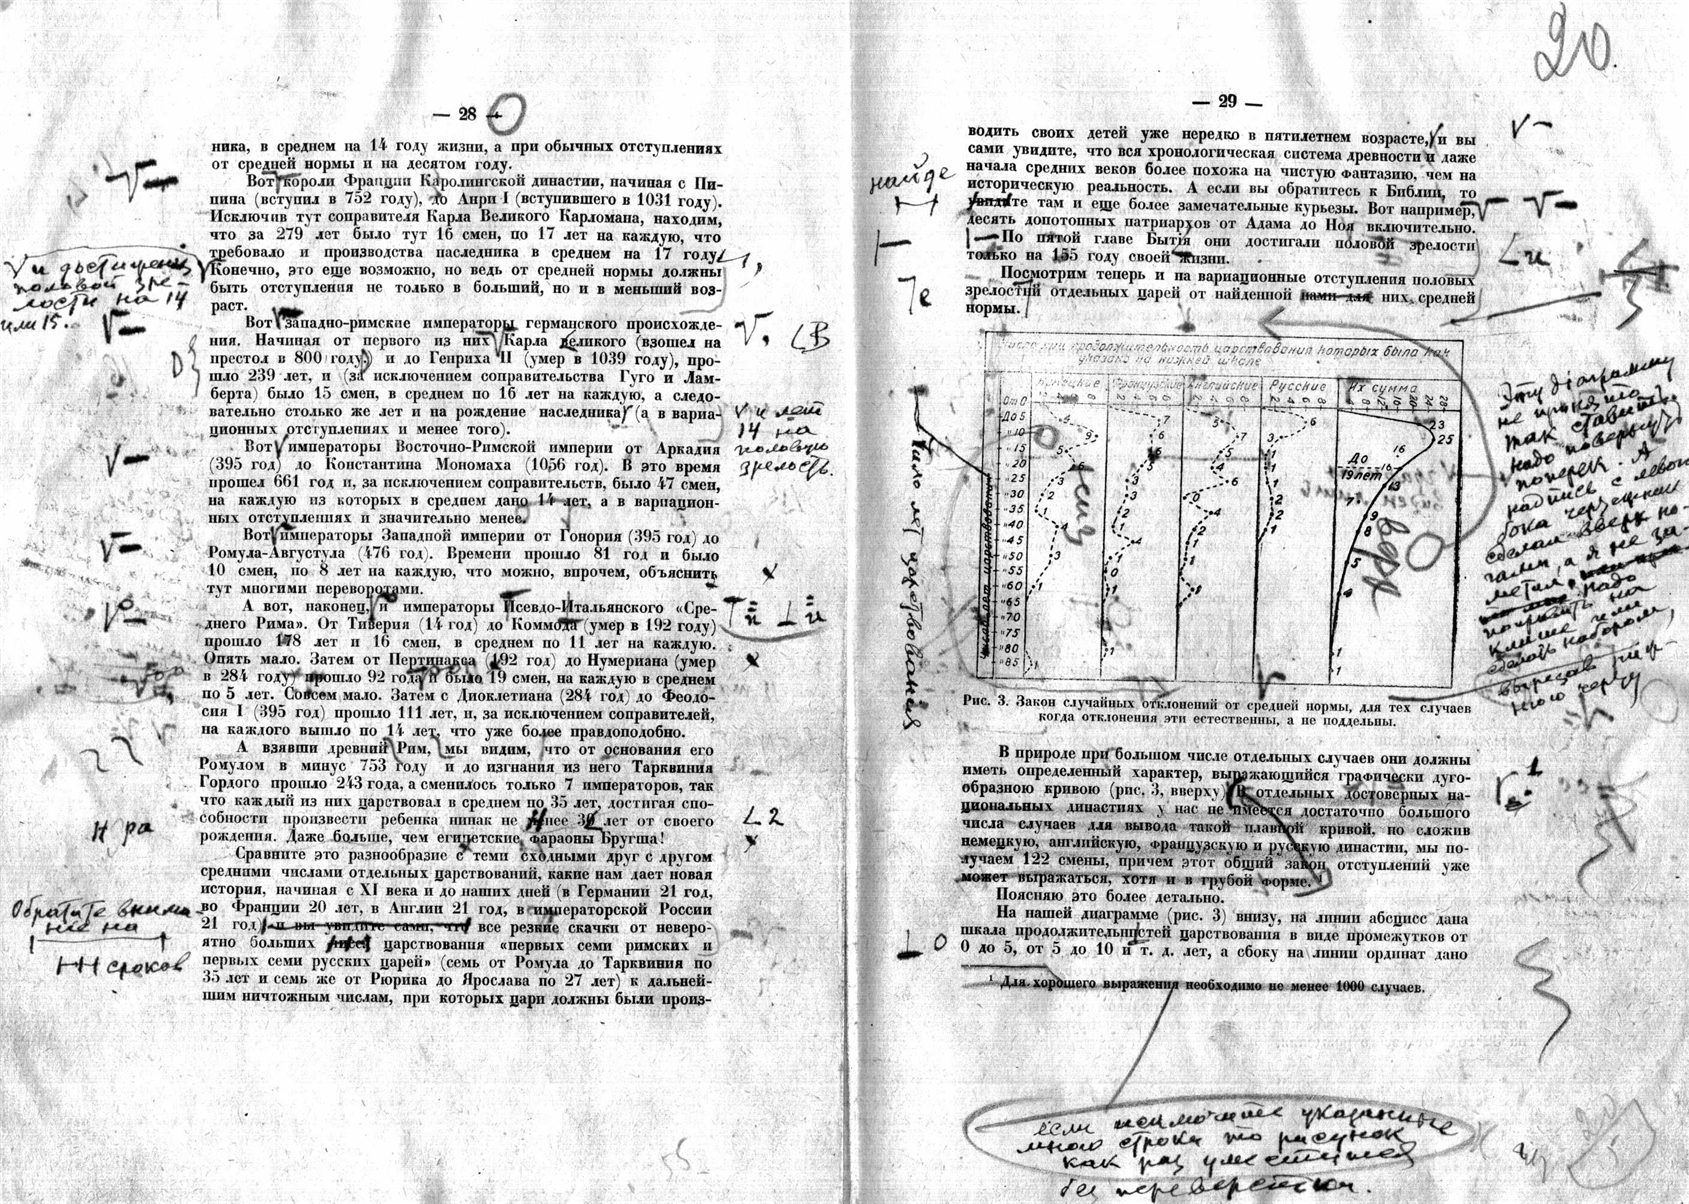 — 28 —
ника, в среднем на 14 году жизни, а при обычных отступлениях
от средней нормы и на десятом году.
Вот короли Франции Каролингской династии, начиная с Пи-
пина (вступил в 752 году), до Анри I (вступившего в 1031 году).
Исключив тут соправителя Карла Великого Карломана, находим,
что за 279 лет было тут 16 смен, по 17 лет на каждую, что
требовало и производства наследника в среднем на 17 году.
Конечно, это еще возможно, но ведь от средней нормы должны
быть отступления не только в больший, но и в меньший воз-
раст.
и достижения
половой зре-
лости на 14
или 15.
Вот западно-римские императоры германского происхожде-
ния. Начиная от первого из них Карла великого (взошел на
престол в 800 году) и до Генриха II (умер в 1039 году), про-
шло 239 лет, и (за исключением соправительства Гуго и Лам-
берта) было 15 смен, в среднем по 16 лет на каждую, а следо-
вательно столько же лет и на рождение наследника (а в вариа-
ционных отступлениях и менее того).
и лет
14 на
половую
зрелость.
Вот императоры Восточно-Римской империи от Аркадия
(395 год) до Константина Мономаха (1056 год). В это время
прошел 661 год и, за исключением соправительств, было 47 смен,
на каждую из которых в среднем дано 14 лет, а в вариацион-
ных отступлениях и значительно менее.
Вот императоры Западной империи от Гонория (395 год) до
Ромула-Августула (476 год). Времени прошло 81 год и было
10 смен, по 8 лет на каждую, что можно, впрочем, объяснить
тут многими переворотами.
А вот, наконец, и императоры Псевдо-Итальянского «Сре-
днего Рима». От Тиверия (14 год) до Коммода (умер в 192 году)
прошло 178 лет и 16 смен, в среднем по 11 лет на каждую.
Опять мало. Затем от Пертинакса (192 год) до Нумериана (умер
в 284 году) прошло 92 года и было 19 смен, на каждую в среднем
по 5 лет. Совсем мало. Затем с Диоклетиана (284 год) до Феодо-
сия I (395 год) прошло 111 лет, и, за исключением соправителей,
на каждого вышло по 14 лет, что уже более правдоподобно.
А взявши древний Рим, мы видим, что от основания его
Ромулом в минус 753 году и до изгнания из него Тарквиния
Гордого прошло 243 года, а сменилось только 7 императоров, так
что каждый из них царствовал в среднем по 35 лет, достигая спо-
собности произвести ребенка никак не менее 30 лет от своего
рождения. Даже больше, чем египетские фараоны Бругша!
Н ра
L 2
Сравните это разнообразие с теми сходными друг с другом
средними числами отдельных царствований, какие нам дает новая
история, начиная с XI века и до наших дней (в Германии 21 год,
во Франции 20 лет, в Англии 21 год, в императорской России
21 год) и вы увидите сами, что все резкие скачки от неверо-
ятно больших чисел царствования «первых семи римских и
первых семи русских царей» (семь от Ромула до Тарквиния по
35 лет и семь же от Рюрика до Ярослава по 27 лет) к дальней-
шим ничтожным числам, при которых цари должны были произ-
Обратите внима-
ние на
сроков
20.
— 29 —
водить своих детей уже нередко в пятилетнем возрасте, и вы
сами увидите, что вся хронологическая система древности и даже
начала средних веков более похожа на чистую фантазию, чем на
историческую реальность. А если вы обратитесь к Библии, то
увидите там и еще более замечательные курьезы. Вот например,
десять допотопных патриархов от Адама до Ноя включительно.
По пятой главе Бытия они достигали половой зрелости
только на 155 году своей жизни.
найде
Посмотрим теперь и на вариационные отступления половых
зрелостий отдельных царей от найденной нами для них средней
нормы.
Число лет царствования
Число при продолжительность царствования которых была как
указано на нижней шкале
Немецкие Французские Английские Русские Их сумма
От 0
До 5
10
15
20
25
30
35
40
45
50
55
60
65
70
75
80
85
Число лет царствования
До
19 лет
23
25
16
16
13
низ
верх
Эту диаграмму
не принято
так ставить.
Надо повернуть
поперек. А
надпись с левого
бока
Рис. 3. Закон случайных отклонений от средней нормы, для тех случаев
когда отклонения эти естественны, а не поддельны.
В природе при большом числе отдельных случаев они должны
иметь определенный характер, выражающийся графически дуго-
образною кривою (рис. 3, вверху). В отдельных достоверных на-
циональных династиях у нас не имеется достаточно большого
числа случаев для вывода такой плавной кривой, но сложив
немецкую, английскую, французскую и русскую династии, мы по-
лучаем 122 смены, причем этот общий закон отступлений уже
может выражаться, хотя и в грубой форме. 1
Поясняю это более детально.
На нашей диаграмме (рис. 3) внизу, на линии абсцисс дана
шкала продолжительностей царствования в виде промежутков от
0 до 5, от 5 до 10 и т. д. лет, а сбоку на линии ординат дано
1 Для хорошего выражения необходимо не менее 1000 случаев.
если исключите указанные
мною строки то рисунок
как раз уместится
без переверстки.